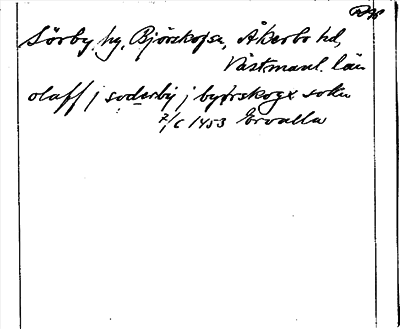 Sörby, hg, Björskogsn, Åkerbo hd,
Västmanl. län
olaff j soderby j byørskogx sokn
7/6 1453 Ervalla